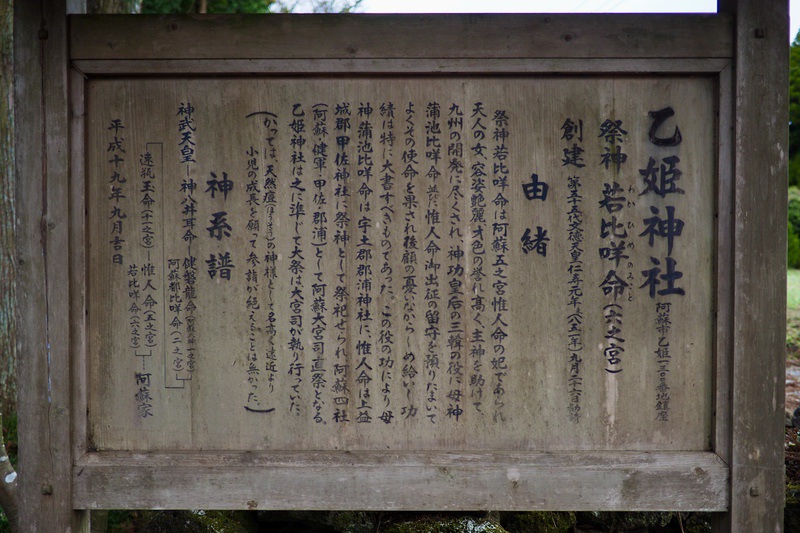 乙姫神社 阿蘇市乙姫一三〇番地鎮座
祭神 若比咩命（六之宮）
わかひめのみこと
創建 第五十五代文徳天皇仁寿元年（八五一）九月二十六日勧請
由緒
祭神若比咩命は阿蘇五之宮惟人命の妃であられ
天人の女、容姿艶麗才色の誉れ高く、主神を助けて
九州の開発に尽くされ、神功皇后の三韓の役に母神
蒲池比咩命並に惟人命御出征の留守を預りたまいて
よくその使命を果され後顧の憂いなからしめ給いし功
績は特に大書すべきものであった。この役の功により母
神蒲池比咩命は宇土郡郡浦神社に、惟人命は上益
城郡甲佐神社に祭神として祭祀せられ、阿蘇四社
（阿蘇・健軍・甲佐・郡浦）として阿蘇大宮司直祭となる。
乙姫神社は之に準じて大祭は大宮司が執り行っていた。
（かっては、天然痘（ほうそう）の神様として名高く遠近より
小児の成長を願って参詣が絶えることは無かった。）
神系譜
神武天皇―神八井耳命―健磐龍命（一之宮）
阿蘇都比咩命（二之宮）
速瓶玉命（十一之宮）―惟人命（五之宮）
若比咩命（六之宮）―阿蘇家
平成十九年九月吉日